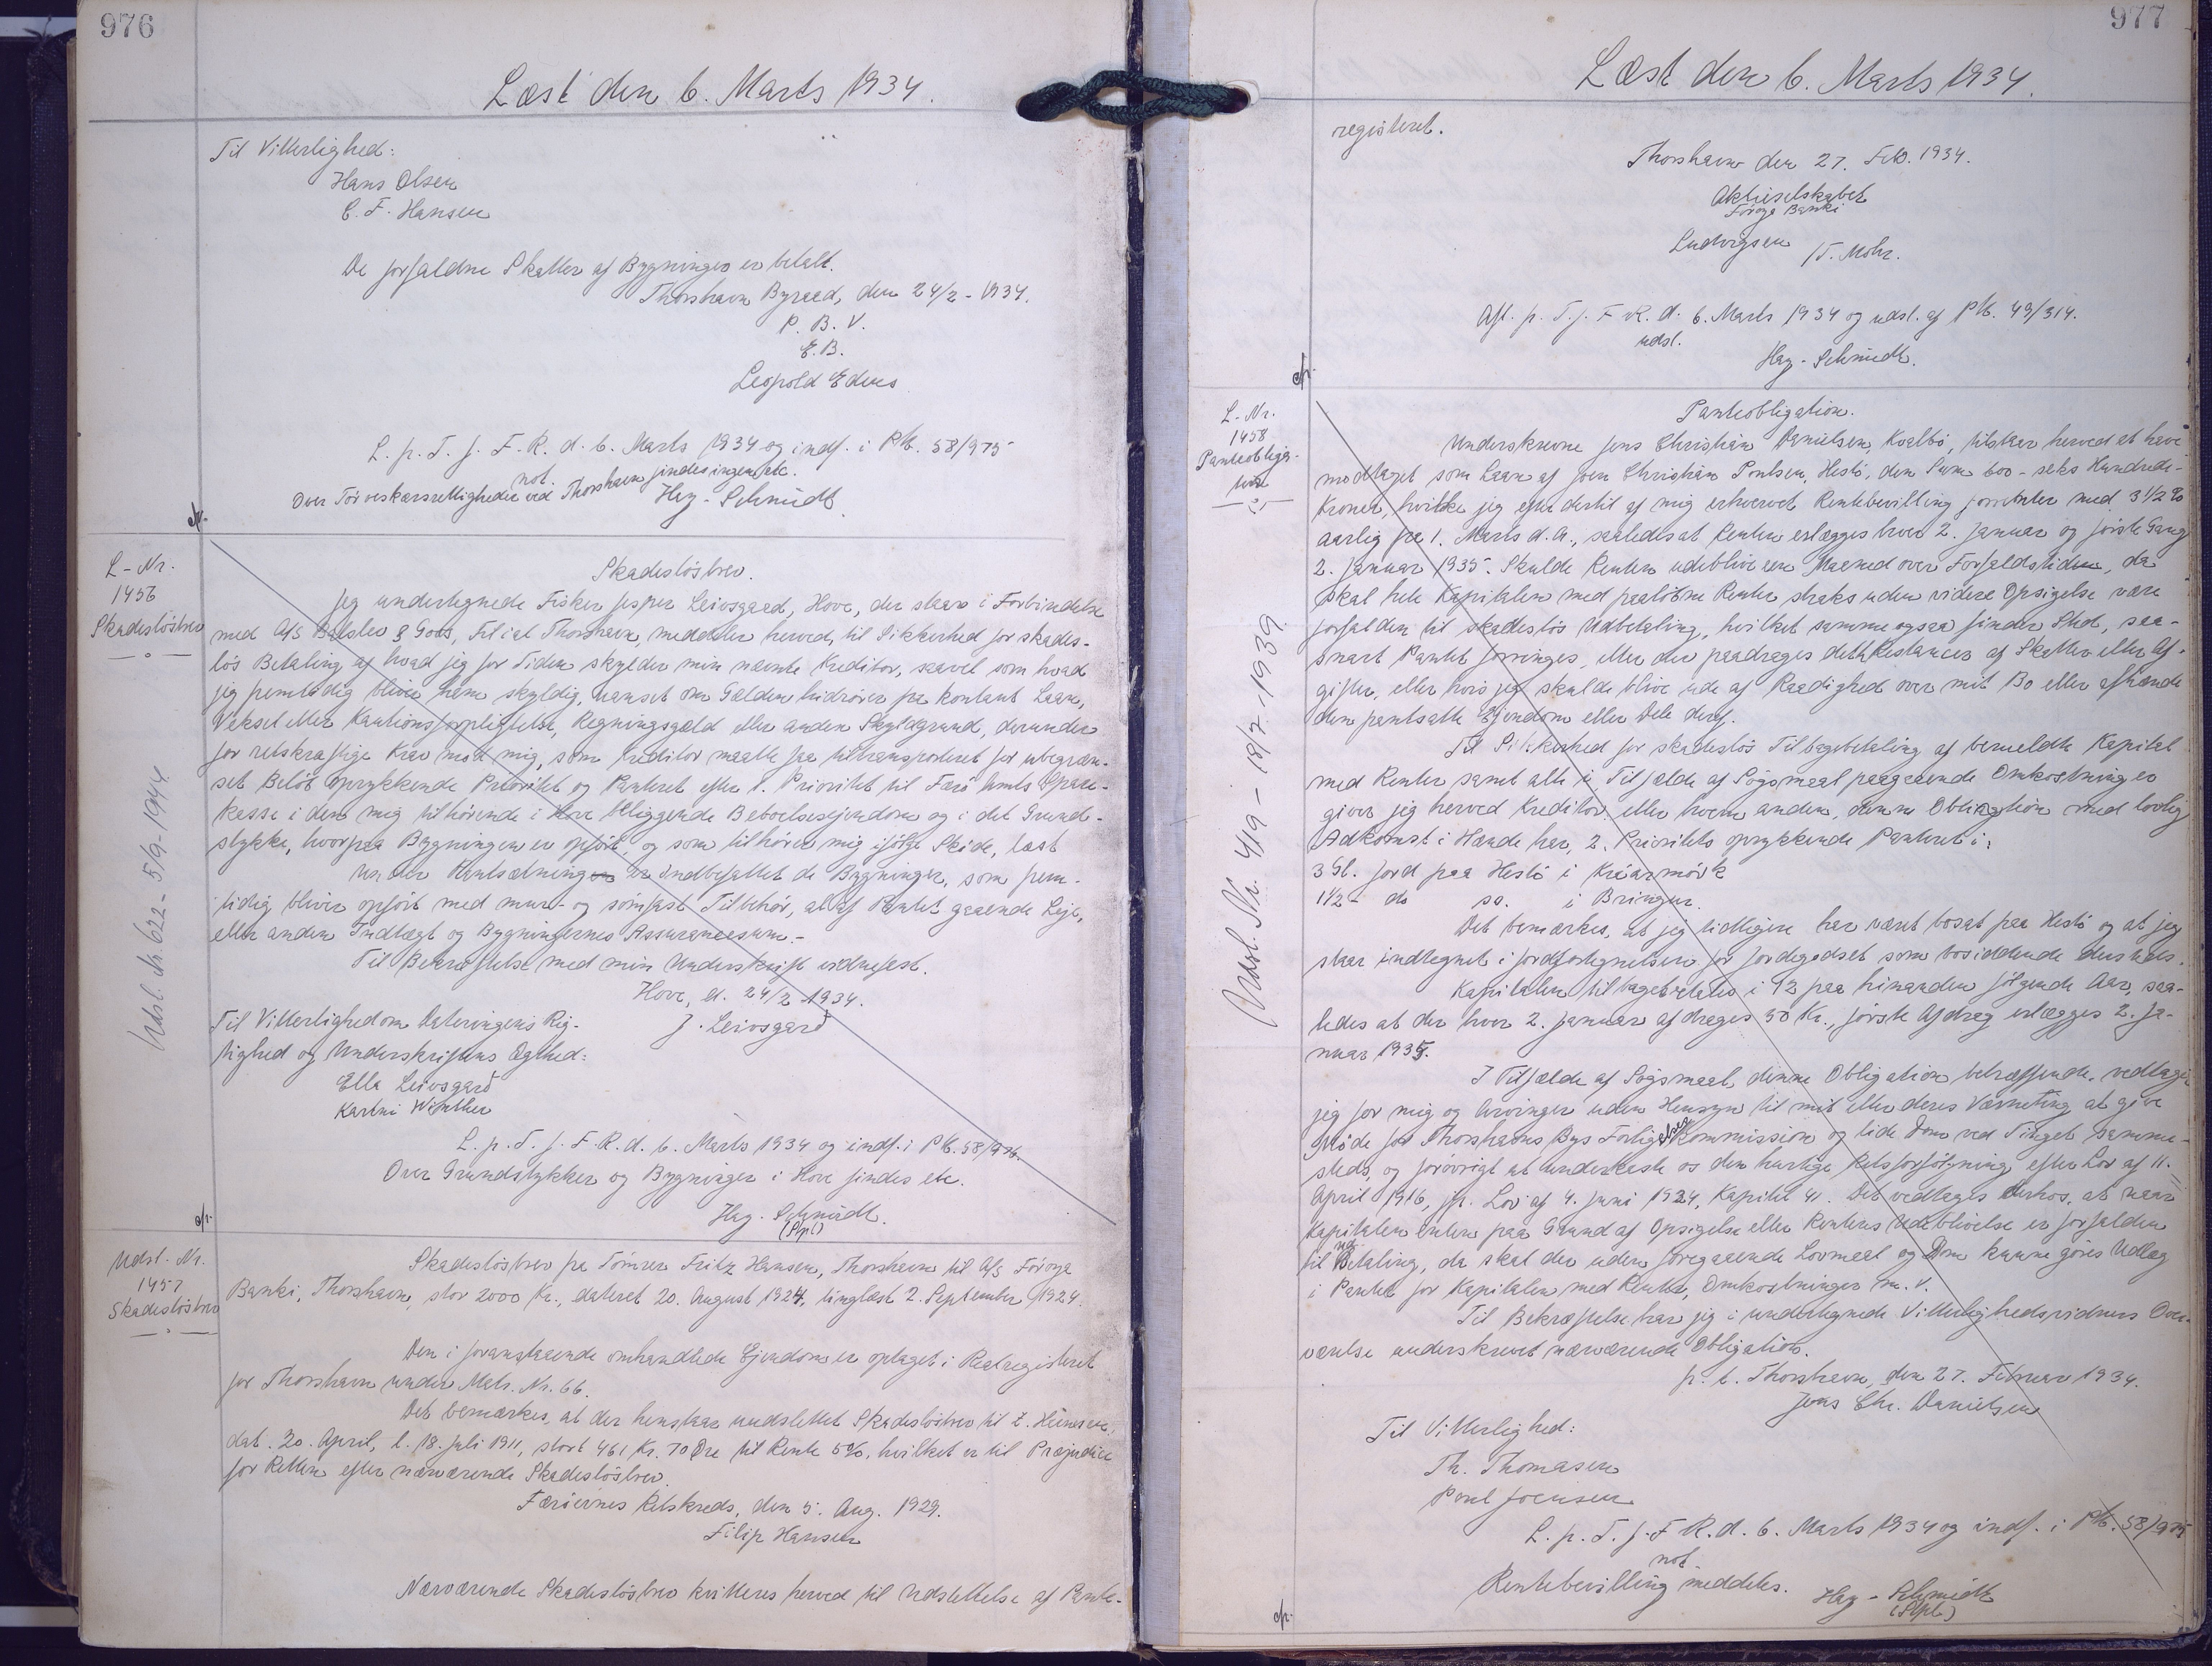 976
Læst den 6. Marts 1934.
Til Vitterlighed:
Hans Olsen
C. F. Hansen
De forfaldne Skatter af Bygningen er betalt.
Thorshavn Byraad, den 24/2 - 1934.
P. B. V.
E. B.
Leopold Edens
L. p. T. f. F. R. d. 6. Marts 1934 og indf. i Pb. 58/975
not.
Over Törveskærsrettigheden ved Thorshavn findes ingen etc.
Hag-Schmidt.
L-Nr.
1456
Skadeslösbrev
Skadeslösbrev.
Jeg undertegnede Fisker Jesper Leivsgaard, Hove, der staar i Forbindelse
med A/S Balslev & Gods, Filial Thorshavn, meddeler herved, til Sikkerhed for skades-
lös Betaling af hvad jeg for Tiden skylder min nævnte Kreditor, saavel som hvad
jeg fremtidig bliver ham skyldig, uanset om Gælden hidrörer fra kontant Laan,
Veksel eller Kautionsforpligtelse, Regningsgæld eller anden Skyldgrund, derunder
for retskraftige Krav mod mig, som Kreditor maatte faa tiltransporteret for ubegræn-
set Belöb oprykkende Prioritet og Panteret efter 1. Prioritet til Færö Amts Spare-
kasse i den mig tilhörende i Hove beliggende Beboelsesejendom og i det Grund-
stykke, hvorpaa Bygningen er opfört, og som tilhörer mig ifölge Sköde, læst
Under Pantsætningen er indbefattet de Bygninger, som frem-
tidig bliver opfört med mur- og sömfast Tilbehör, al af Pantet gaaende Leje,
eller anden Indtægt og Bygningernes Assurancesum.-
Til Bekræftelse med min Underskrift vidnefast.
Hove, d. 24/2 1934.
Til Vitterlighed om Dateringens Rig-
J. Leivsgarð
tighed og Underskriftens Ægthed:
Ella Leivsgarð
Karini Winther
L. p. T. f. F. R. d. 6. Marts 1934 og indf. i Pb. 58/976.
Over Grundstykker og Bygninger i Hove findes etc.
Hag-Schmidt.
(Stpl)
Udsl. Nr. 622 - 5/9 - 1944
Udsl. Nr.
1457
Skadeslösbrev
Skadeslösbrev fra Tömrer Fritz Hansen, Thorshavn til A/S Föroya
Banki, Thorshavn, stor 2000 Kr., dateret 20. August 1924, tinglæst 2. September 1924.
Den i foranstaaende omhandlede Ejendom er optaget i Realregisteret
for Thorshavn under Matr. Nr. 66.
Det bemærkes, at der henstaar uudslettet Skadeslösbrev til Z. Heinesen,
dat. 20. April, l. 18. Juli 1911, stort 461 Kr. 70 Øre til Rente 5%, hvilket er til Præjudice
for Retten efter nærværende Skadeslösbrev.
Færöernes Retskreds, den 5. Aug. 1929.
Filip Hansen
Nærværende Skadeslösbrev kvitteres herved til Udslettelse af Pante-
977
Læst den 6. Marts 1934.
registeret.
Thorshavn den 27. Feb. 1934.
Aktieselskabet
Föroya Banki
Ludvigsen /T. Mohr.
Afl. p. T. f. F. R. d. 6. Marts 1934 og udsl. af Pb. 49/314.
udsl.
Hag-Schmidt.
L-Nr.
1458
Panteobliga-
tion
Panteobligation.
Underskrevne Jens Christian Danielsen, Kvalbö, tilstaar herved at have
modtaget som Laan af Joen Christian Poulsen, Hestö, den Sum 600 - seks Hundrede-
Kroner, hvilke jeg efter dertil af mig erhvervet Rentebevilling forrenter med 3 1/2 %
aarlig fra 1. Marts d. A., saaledes at Renten erlægges hver 2. Januar og förste Gang
2. Januar 1935. Skulde Renten udeblive een Maaned over Forfaldstiden, da
skal hele Kapitalen med paalöbne Renter straks uden videre Opsigelse være
forfalden til skadeslös Udbetaling, hvilket samme ogsaa finder Sted, saa-
snart Pantet forringes, eller der paadrages dette Restancer af Skatter eller Af-
gifter, eller hvis jeg skulde blive ude af Raadighed over mit Bo eller afhænde
den pantsatte Ejendom eller Dele deraf.
Til Sikkerhed for skadeslös Tilbagebetaling af bemeldte Kapital
med Renter samt alle i Tilfælde af Sögsmaal paagaaende Omkostninger
giver jeg herved Kreditor, eller hvem anden, denne Obligation med lovlig
Adkomst i Hænde har, 2. Prioritets oprykkende Panteret i:
3 Gl. Jord paa Hestö i Kráarmörk
1 1/2 - do so. i Bringur.
Det bemærkes, at jeg tidligere har været bosat paa Hestö og at jeg
staar indtegnet i Jordfortegnelsen for Jordegodset som bosiddende dersteds.
Kapitalen tilbagebetales i 12 paa hinanden fölgende Aar, saa-
ledes at der hver 2. Januar afdrages 50 Kr., förste Afdrag erlægges 2. Ja-
nuar 1935.
I Tilfælde af Sögsmaal, denne Obligation betræffende, vedtager
jeg for mig og Arvinger uden Hensyn til mit eller deres Værneting at give
Möde for Thorshavns Bys Forligelseskommission og lide Dom ved Tinget samme-
steds, og forövrigt at underkaste os den hurtige Retsforfölgning efter Lov af 11.
April 1916, jfr. Lov af 4. Juni 1924, Kapitel 41. Det vedtages derhos, at naar
Kapitalen enten paa Grund af Opsigelse eller Rentens Udeblivelse er forfalden
til Udbetaling, da skal der uden foregaaende Lovmaal og Dom kunne göres Udlæg
i Pantet for Kapitalen med Renter, Omkostninger m. v.
Til Bekræftelse har jeg i undertegnede Vitterlighedsvidners Over-
værelse underskrevet nærværende Obligation.
p. t. Thorshavn, den 27. Februar 1934.
Jens Chr. Danielsen
Til Vitterlighed:
Th. Thomasen
Poul Joensen
L. p. T. f. F. R. d. 6. Marts 1934 og indf. i Pb. 58/975
not.
Rentebevilling meddeles.
Hag-Schmidt
(Stpl)
Udsl. Nr. 419 - 18/7 1939.